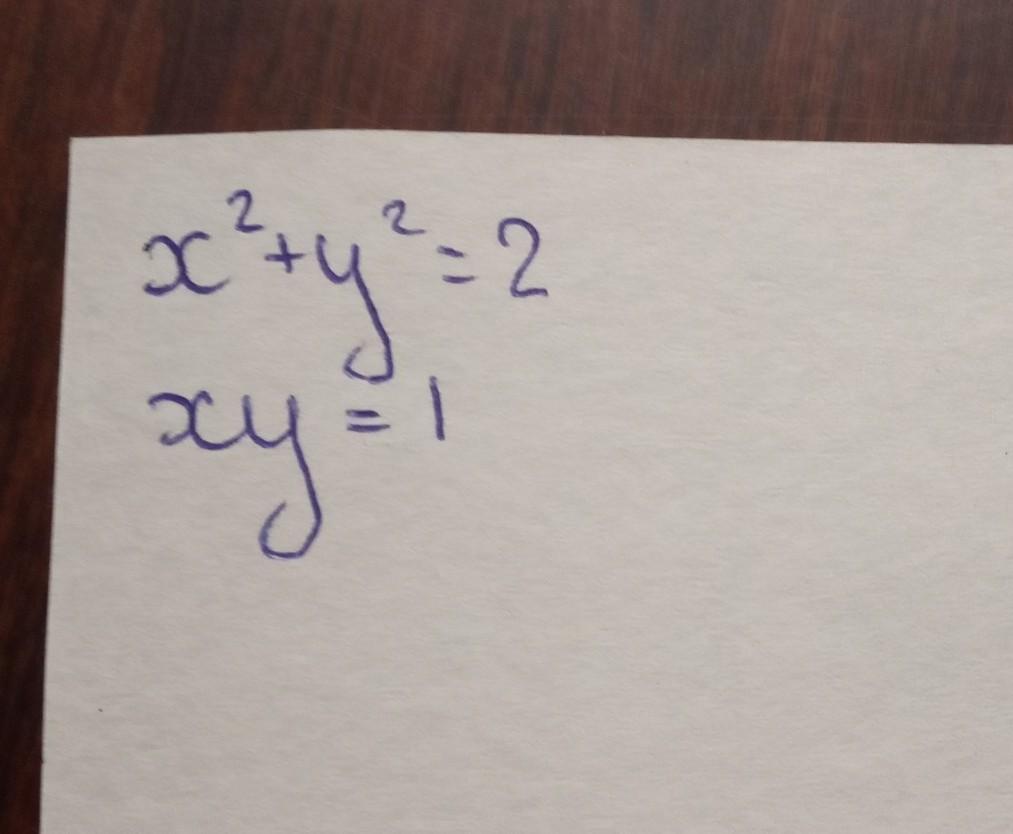 x²+y²=2
xy=1